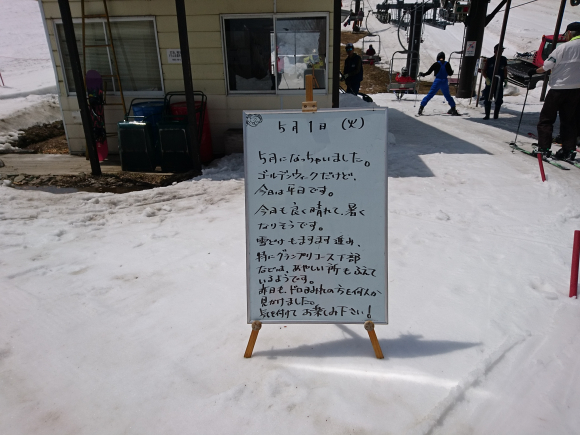 5月1日 (火)
5月になっちゃいました。
ゴールデンウィークだけど、
今日は平日です。
今日も良く晴れて、暑く
なりそうです。
雪どけもますます進み、
特にグランプリコース下部
などは、あやしい所もふえて
いるようです。
昨日も、ドロまみれの方を何人か
見かけました。
気を付けてお楽しみ下さい!